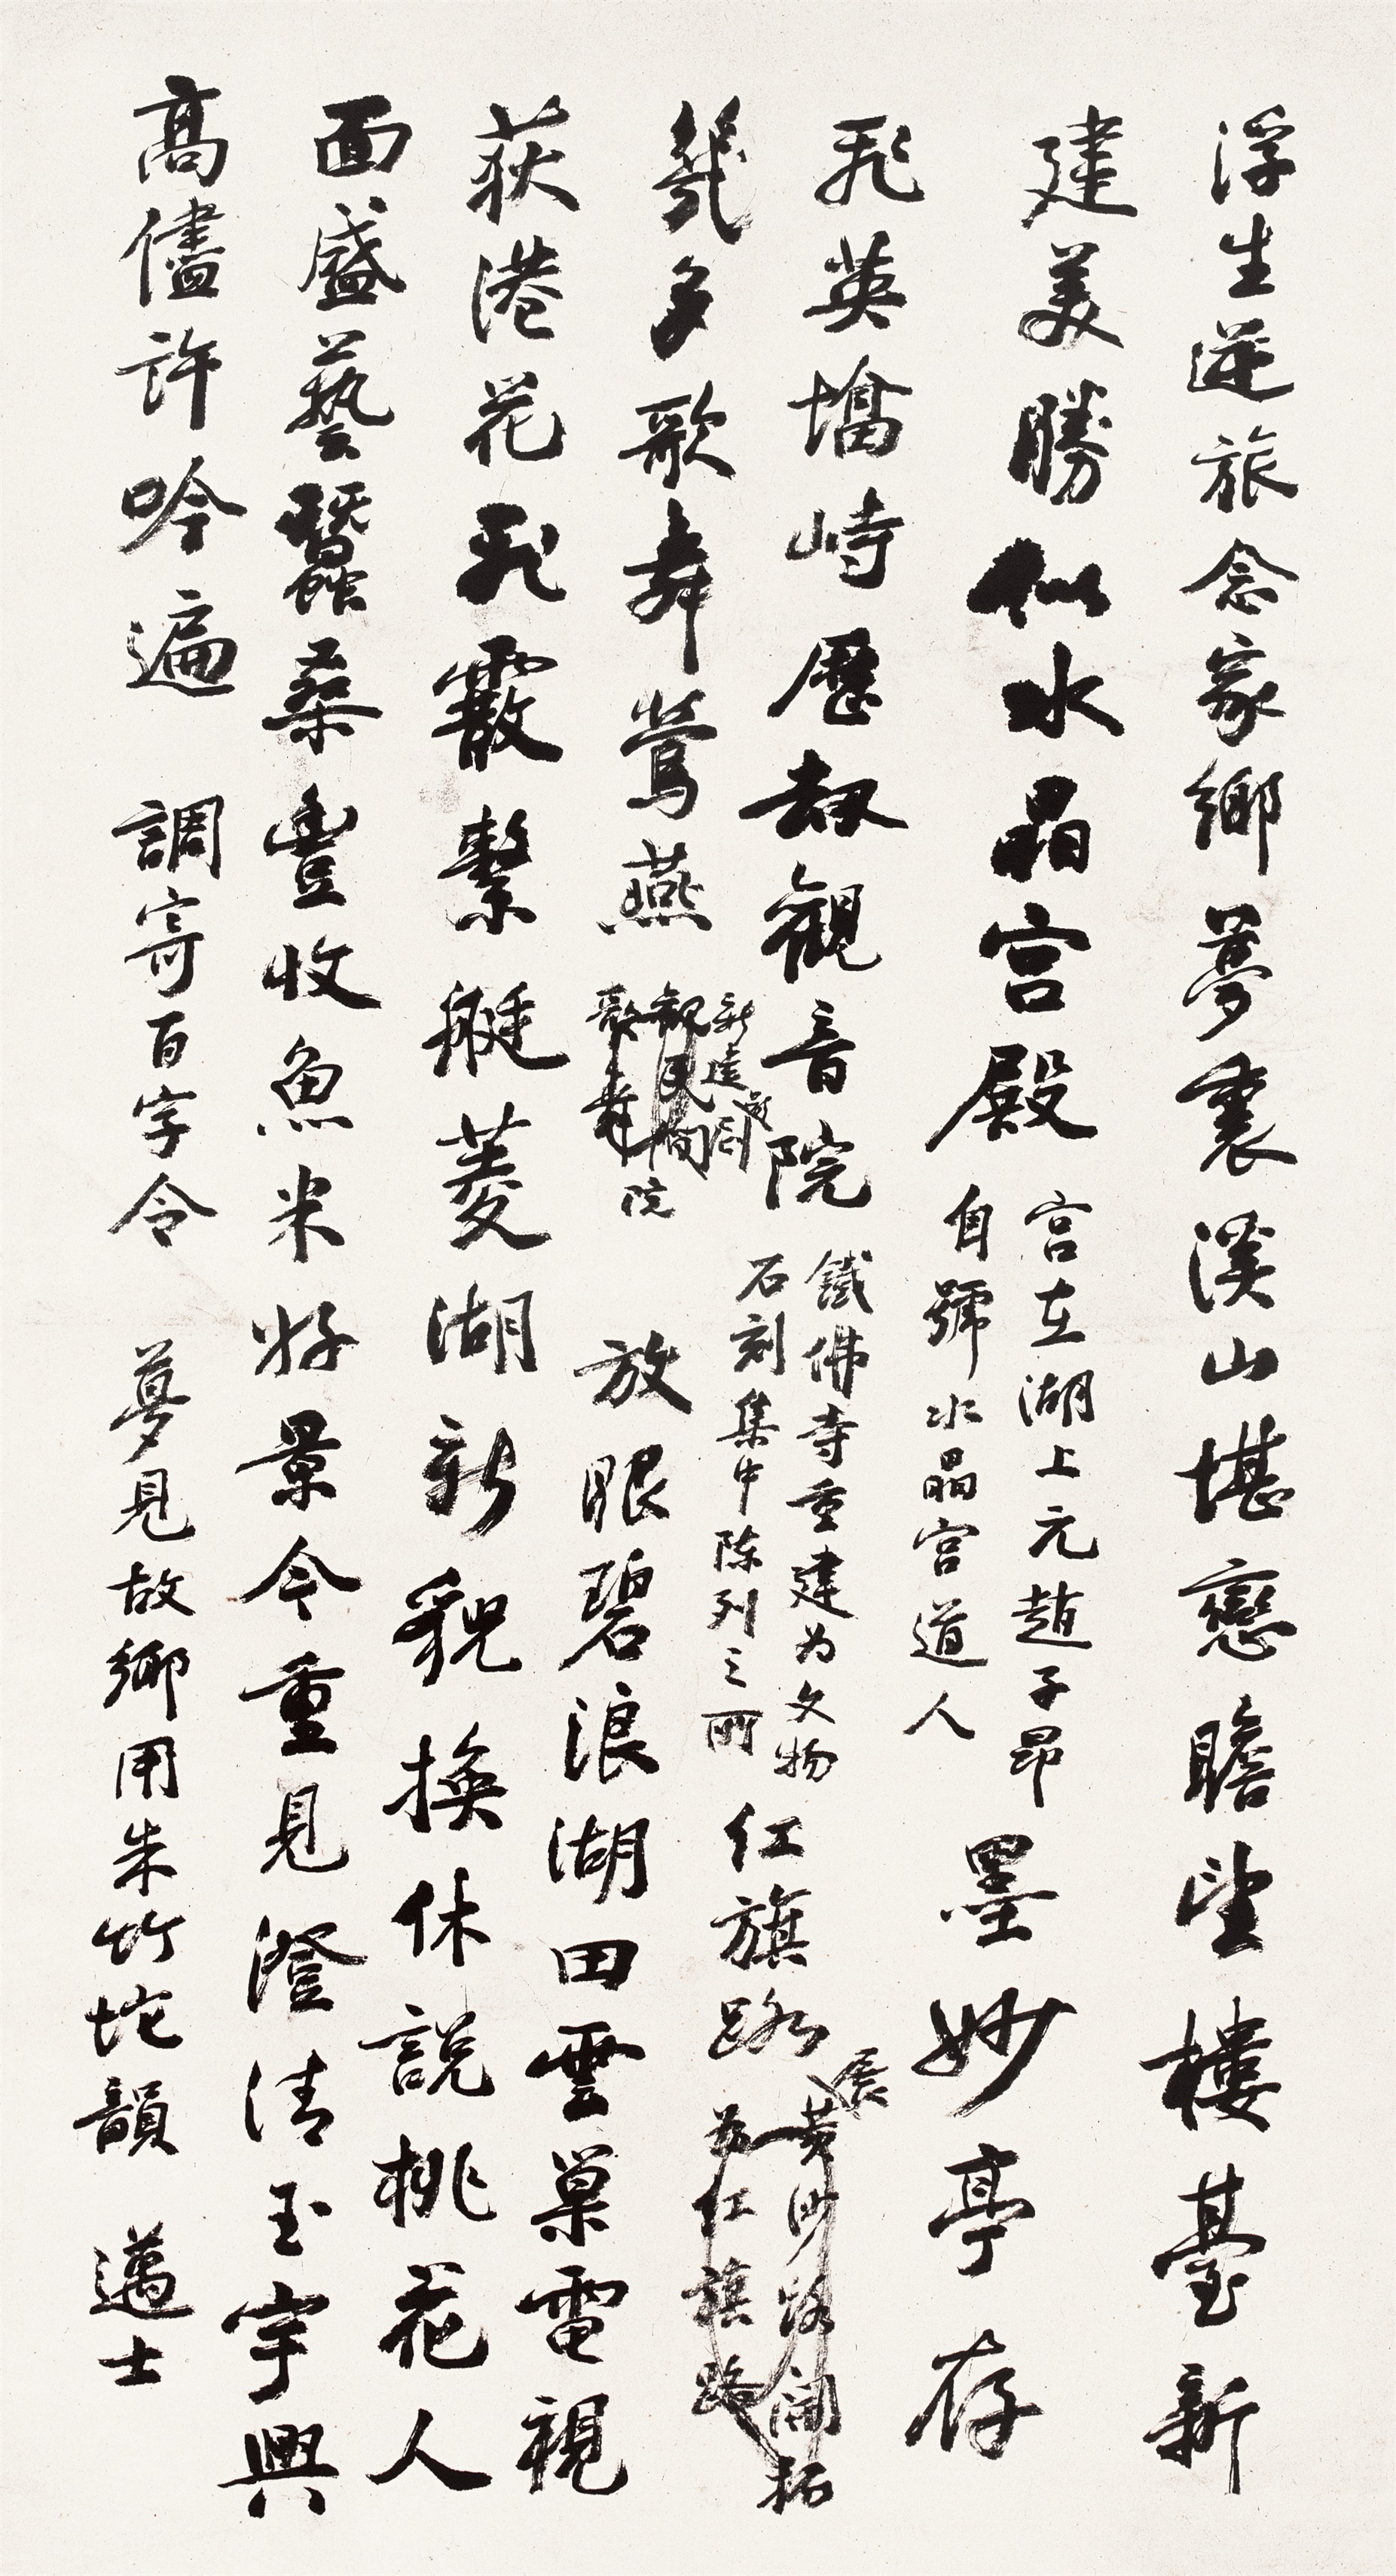 浮生逆旅念家鄉夢裏溪山堪戀瞻望樓臺新
建美勝似水晶宫殿
宫在湖上元趙子昂
自號水晶宫道人
墨妙亭存
飛英墖峙歷劫觀音院
鐵佛寺重建为文物
石刻集中陈列之所
红旗路
黄沙路開拓
为红旗路
展
幾多歌舞鶯燕
新建劇
觀民间
歌舞院
放眼碧浪湖田雲巢電視
荻港花飛霰繫艇菱湖新貌換休説桃花人
面盛藝蠶桑豊收魚米好景今重見澄清玉宇興
高儘許吟遍 調寄百字令 夢見故鄉用朱竹垞韻 邁士